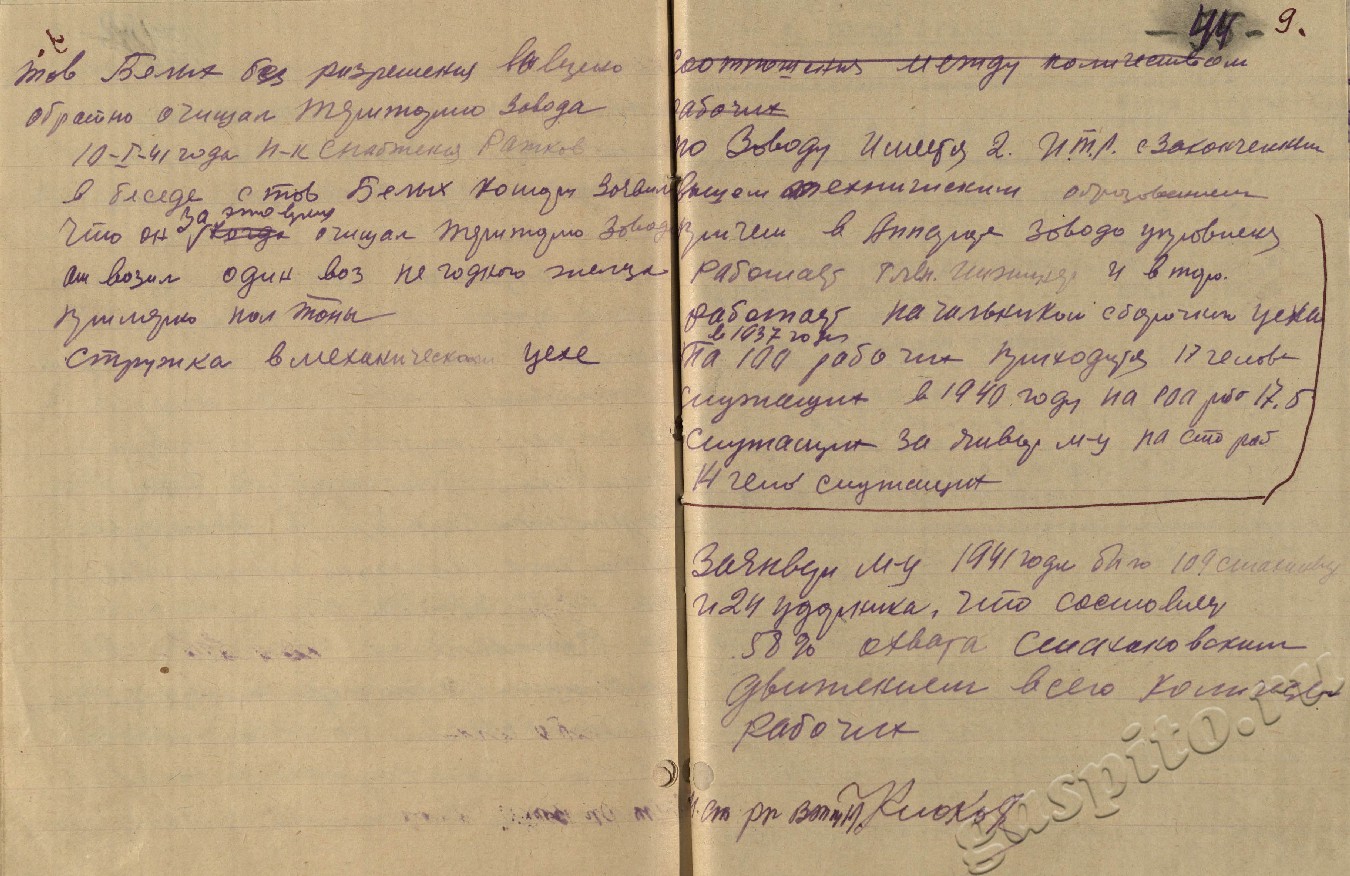 тов Белых без разрешения
обратно очищал территорию завода
10-I-41 года н-к снабжения Рожков
в беседе с тов Белых заявил
что он за это время когда очищал территорию завода
вывозил один воз не годного железа
примерно пол тоны
стружка в механическом цехе
94 9.
соотношения между количеством
рабочих
по Заводу имеется 2. И.Т.Р. с законченным
высшем техническим образованием
причем в Завода управления
работает глав. инженер и втор.
работает начальником сборочным цеха
в 1937 году
На 100 рабочих приходится 17 челов
служащих в 1940 году на 100 раб 17,5
служащих за январь м-ц на сто раб
14 чело служащих
За январь м-ц 1941 года было 109
и 24 ударника, что составляет
58% охвата Стахановским
движением всего
рабочих
gaspito.ru